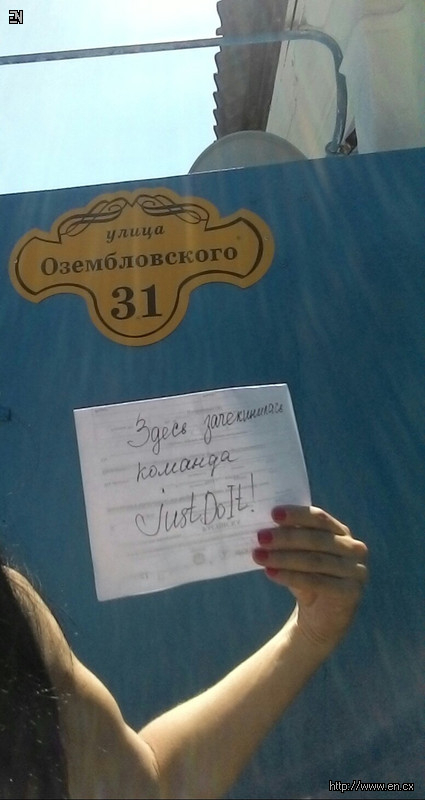 EN
улица
Озембловского
31
Здесь зачекинилась
команда
just Do It!
http://www.en.cx